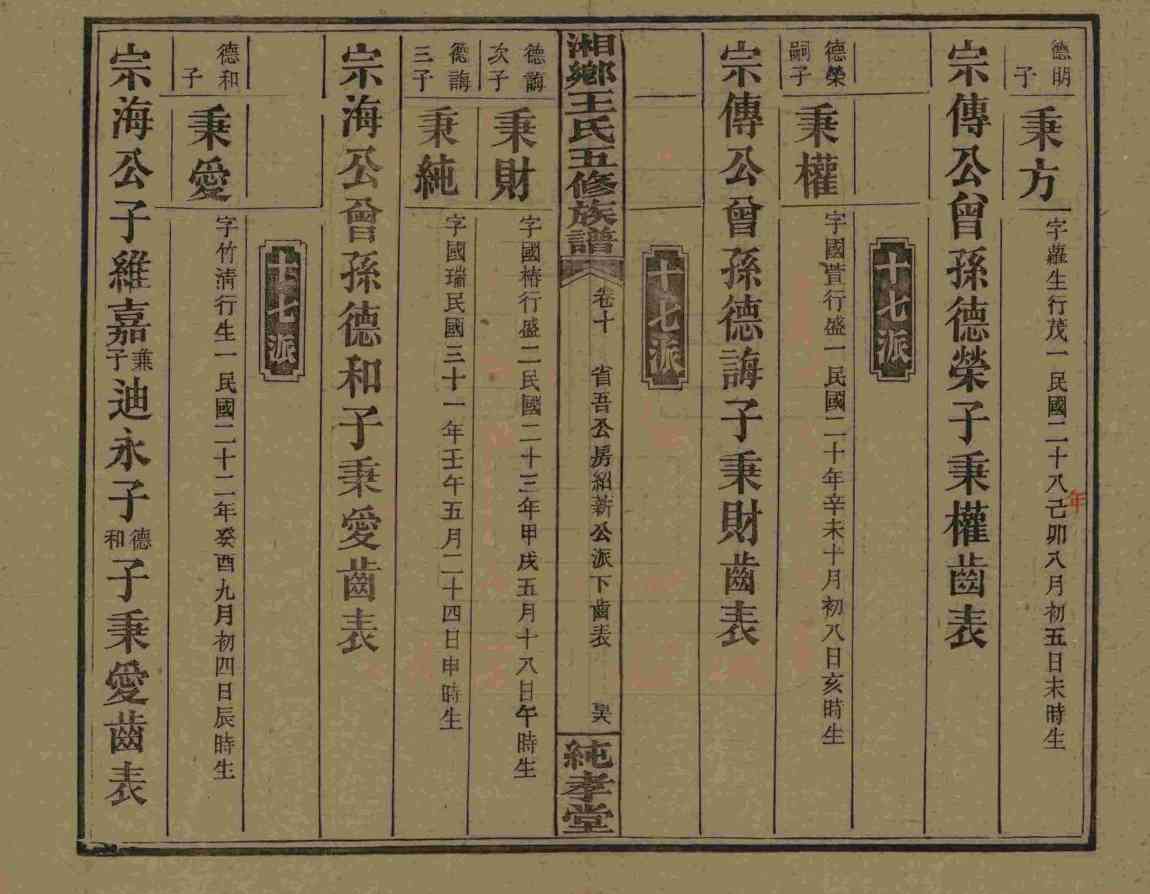 德明子
秉方
字蘿生行茂一民國二十八年己卯八月初五日未時生
宗傳公曾孫德榮子秉權齒表
十七派
德榮嗣子
秉權
字國萱行盛一民國二十年辛未十月初八日亥時生
宗傳公曾孫德誨子秉財齒表
十七派
湘鄉王氏五修族譜
卷十
省吾公房紹新公派下齒表
純孝堂
德誨次子
秉財
字國椿行盛二民國二十三年甲戌五月十八日午時生
德誨三子
秉純
字國瑞民國三十一年壬午五月二十四日申時生
宗海公曾孫德和子秉愛齒表
十七派
德和子
秉愛
字竹清行生一民國二十二年癸酉九月初四日辰時生
宗海公子維嘉兼子迪永子德和子秉愛齒表